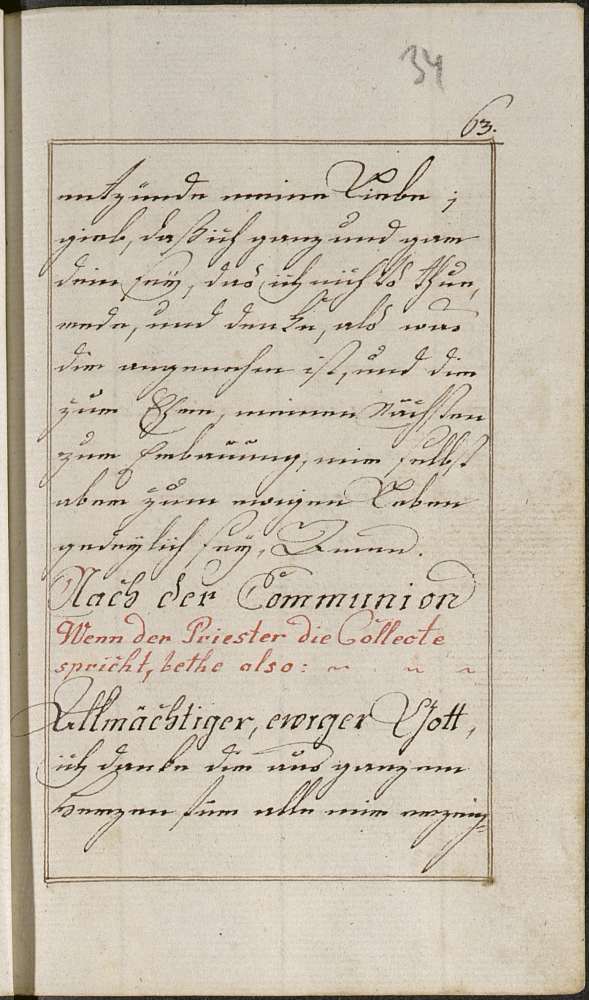 34
63.
entzünde meine Liebe ;
gieb, daß ich ganz und gar
dein sey, das ich nichts thue,
rede, und denke, als was
dir angenehm ist, und dir
zur Ehre, meinen Nächsten
zur Erbauung, mir selbst
aber zum ewigen Leben
gedeylich sey, Amen.
Nach der Communion
Wenn der Priester die Collecte
spricht, bethe also: ~ ~ ~
Allmächtiger, ewiger Gott,
ich danke dir aus ganzem
Herzen für alle mir erzeig-